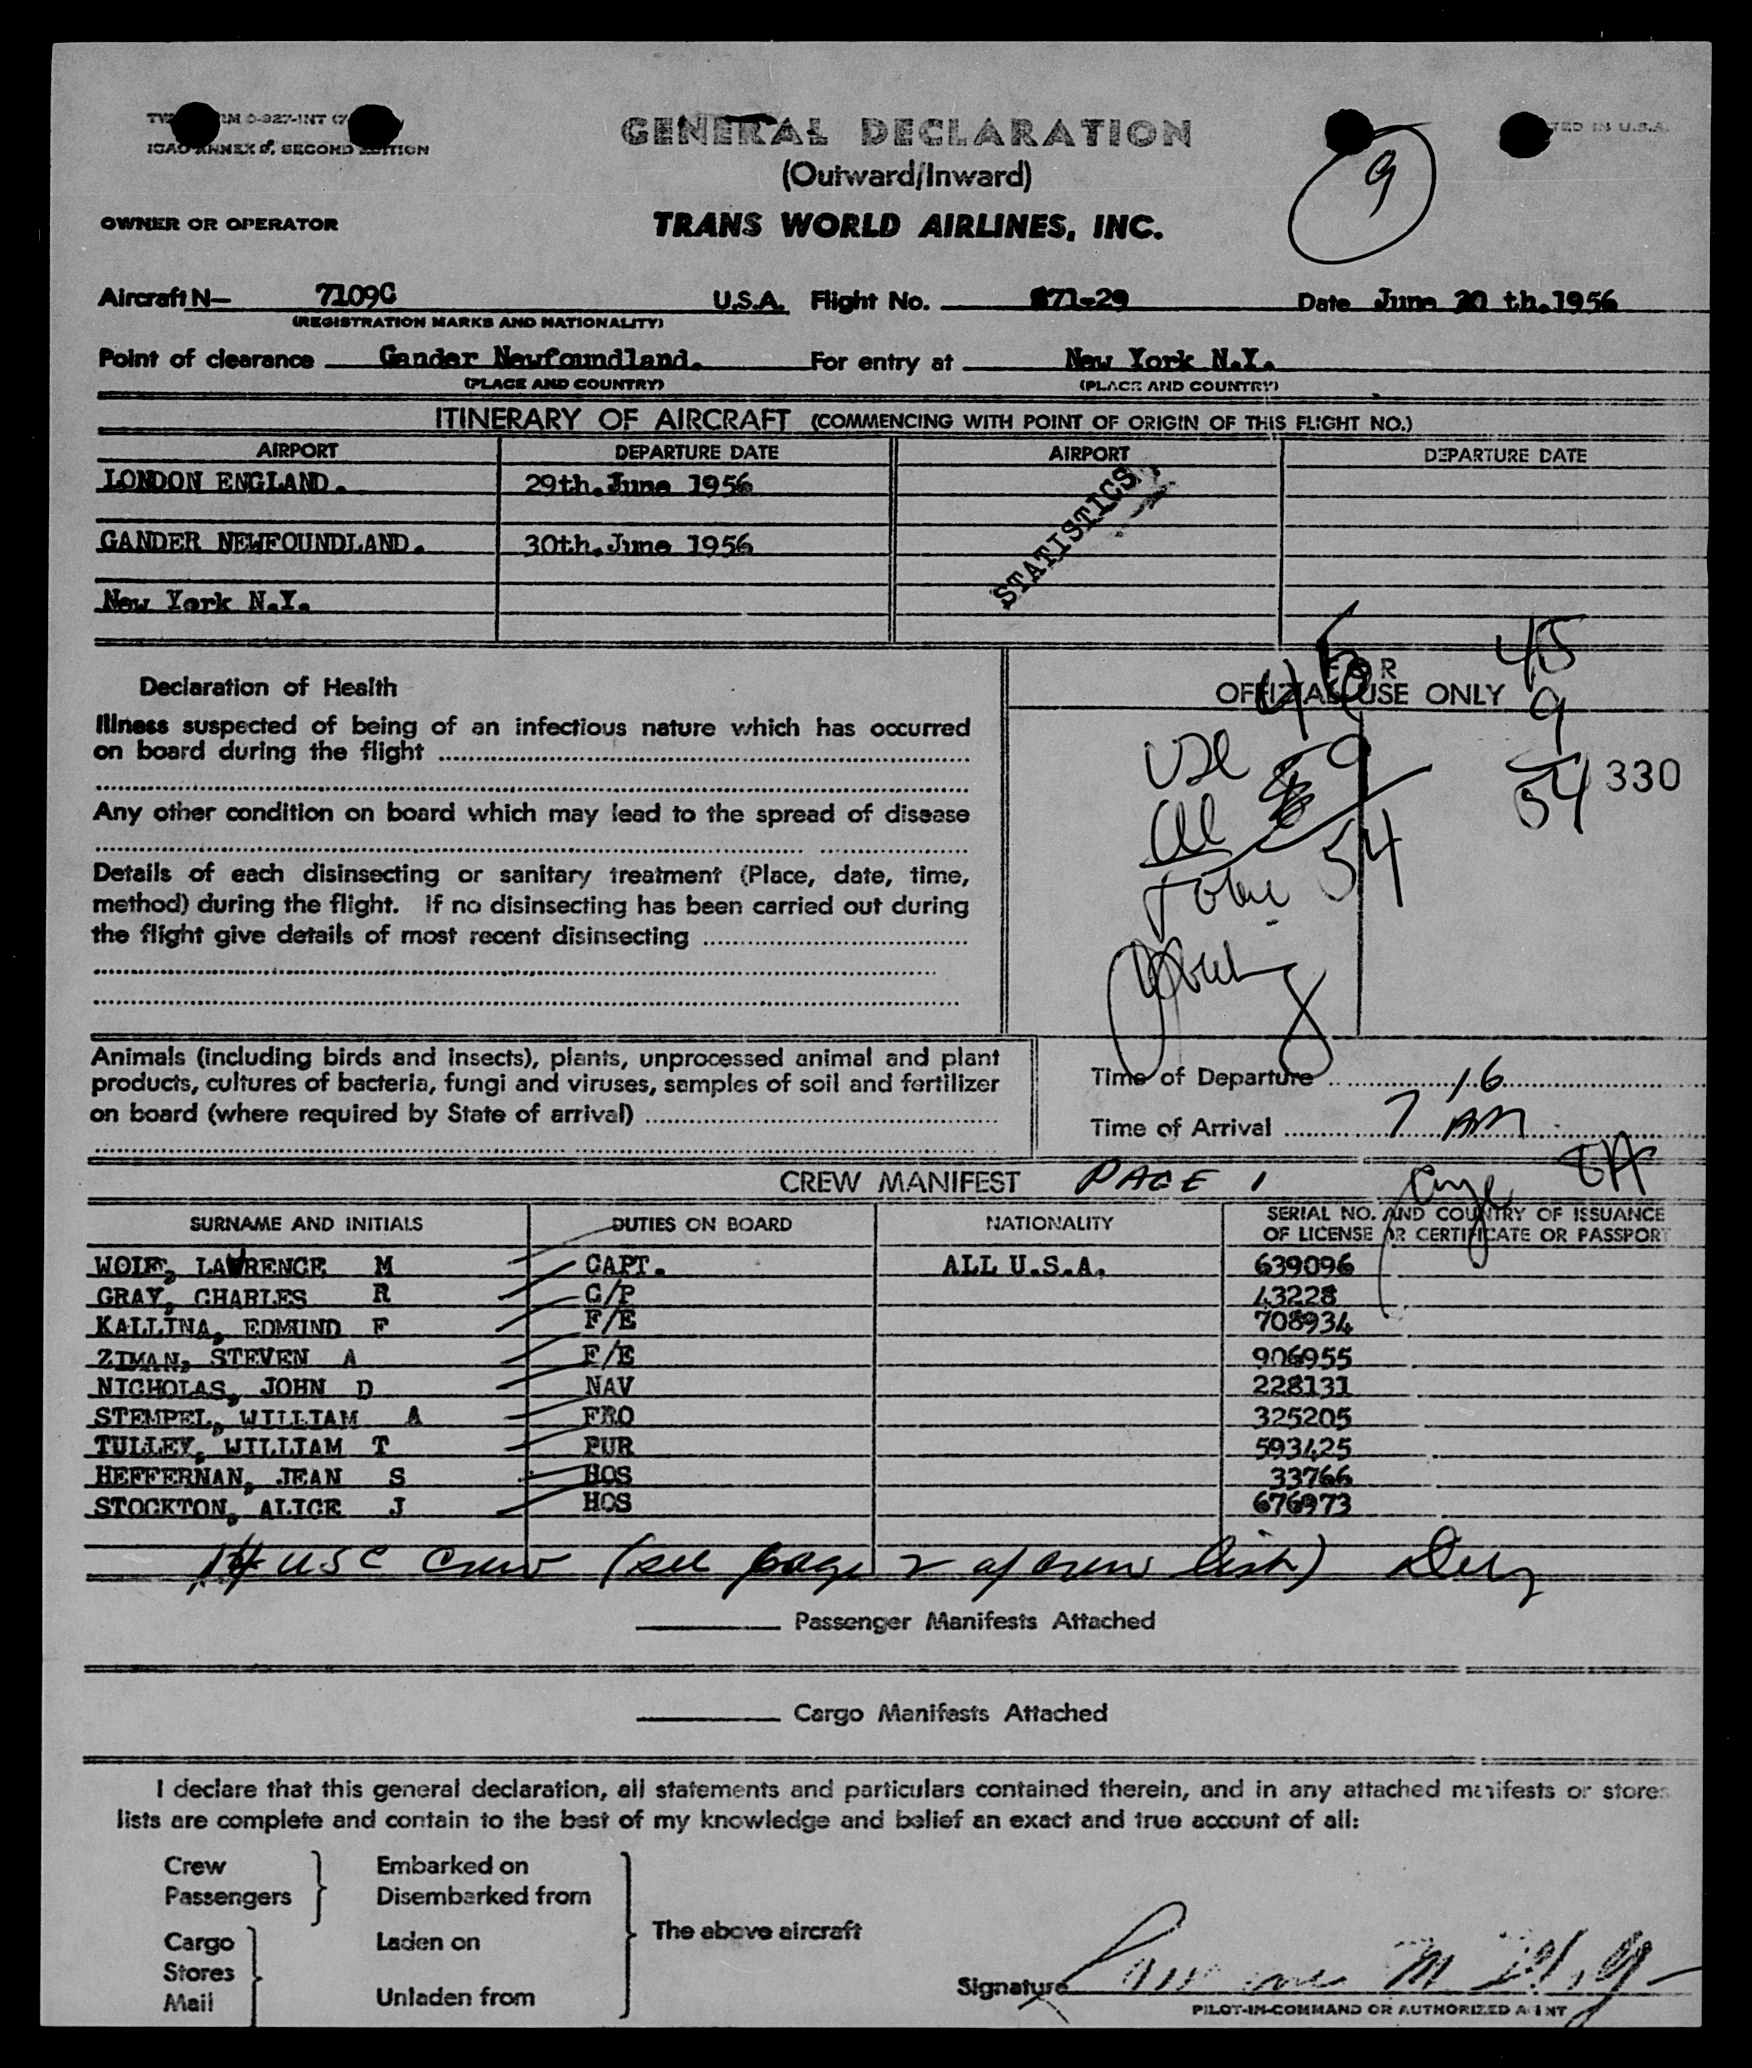 ICAO ANNEX 9, SECOND EDITION
GENERAL DECLARATION
(Outward/Inward)
9
OWNER OR OPERATOR
TRANS WORLD AIRLINES, INC.
Aircraft N— 7109C U.S.A. Flight No. 871-29 Date June 30 th.1956
(REGISTRATION MARKS AND NATIONALITY)
Point of clearance Gander Newfoundland. For entry at New York N.Y.
(PLACE AND COUNTRY) (PLACE AND COUNTRY)
ITINERARY OF AIRCRAFT (COMMENCING WITH POINT OF ORIGIN OF THIS FLIGHT NO.)
AIRPORT DEPARTURE DATE AIRPORT DEPARTURE DATE
LONDON ENGLAND. 29th.June 1956
STATISTICS
GANDER NEWFOUNDLAND. 30th.June 1956
New York N.Y.
Declaration of Health
FOR
OFFICIAL USE ONLY
45
9
54
330
Illness suspected of being of an infectious nature which has occurred
on board during the flight
Any other condition on board which may lead to the spread of disease
Details of each disinsecting or sanitary treatment (Place, date, time,
method) during the flight. If no disinsecting has been carried out during
the flight give details of most recent disinsecting
54
Animals (including birds and insects), plants, unprocessed animal and plant
products, cultures of bacteria, fungi and viruses, samples of soil and fertilizer
on board (where required by State of arrival)
Time of Departure 16
Time of Arrival 7 AM
CREW MANIFEST PAGE 1
SURNAME AND INITIALS DUTIES ON BOARD NATIONALITY SERIAL NO. AND COUNTRY OF ISSUANCE
OF LICENSE OR CERTIFICATE OR PASSPORT
WOLF, LAWRENCE M CAPT. ALL U.S.A. 639096
GRAY, CHARLES R C/P 43228
KALLINA, EDMUND F F/E 708934
ZIMAN, STEVEN A F/E 906955
NICHOLAS, JOHN D NAV 228131
STEMPEL, WILLIAM A FRO 325205
TULLEY, WILLIAM T PUR 593425
HEFFERNAN, JEAN S HOS 33766
STOCKTON, ALICE J HOS 676973
14 USC Crew (see page 2 of crew list)
Passenger Manifests Attached
Cargo Manifests Attached
I declare that this general declaration, all statements and particulars contained therein, and in any attached manifests or stores
lists are complete and contain to the best of my knowledge and belief an exact and true account of all:
Crew Embarked on
Passengers Disembarked from
The above aircraft
Cargo Laden on
Stores
Mail Unladen from
Signature
PILOT-IN-COMMAND OR AUTHORIZED AGENT